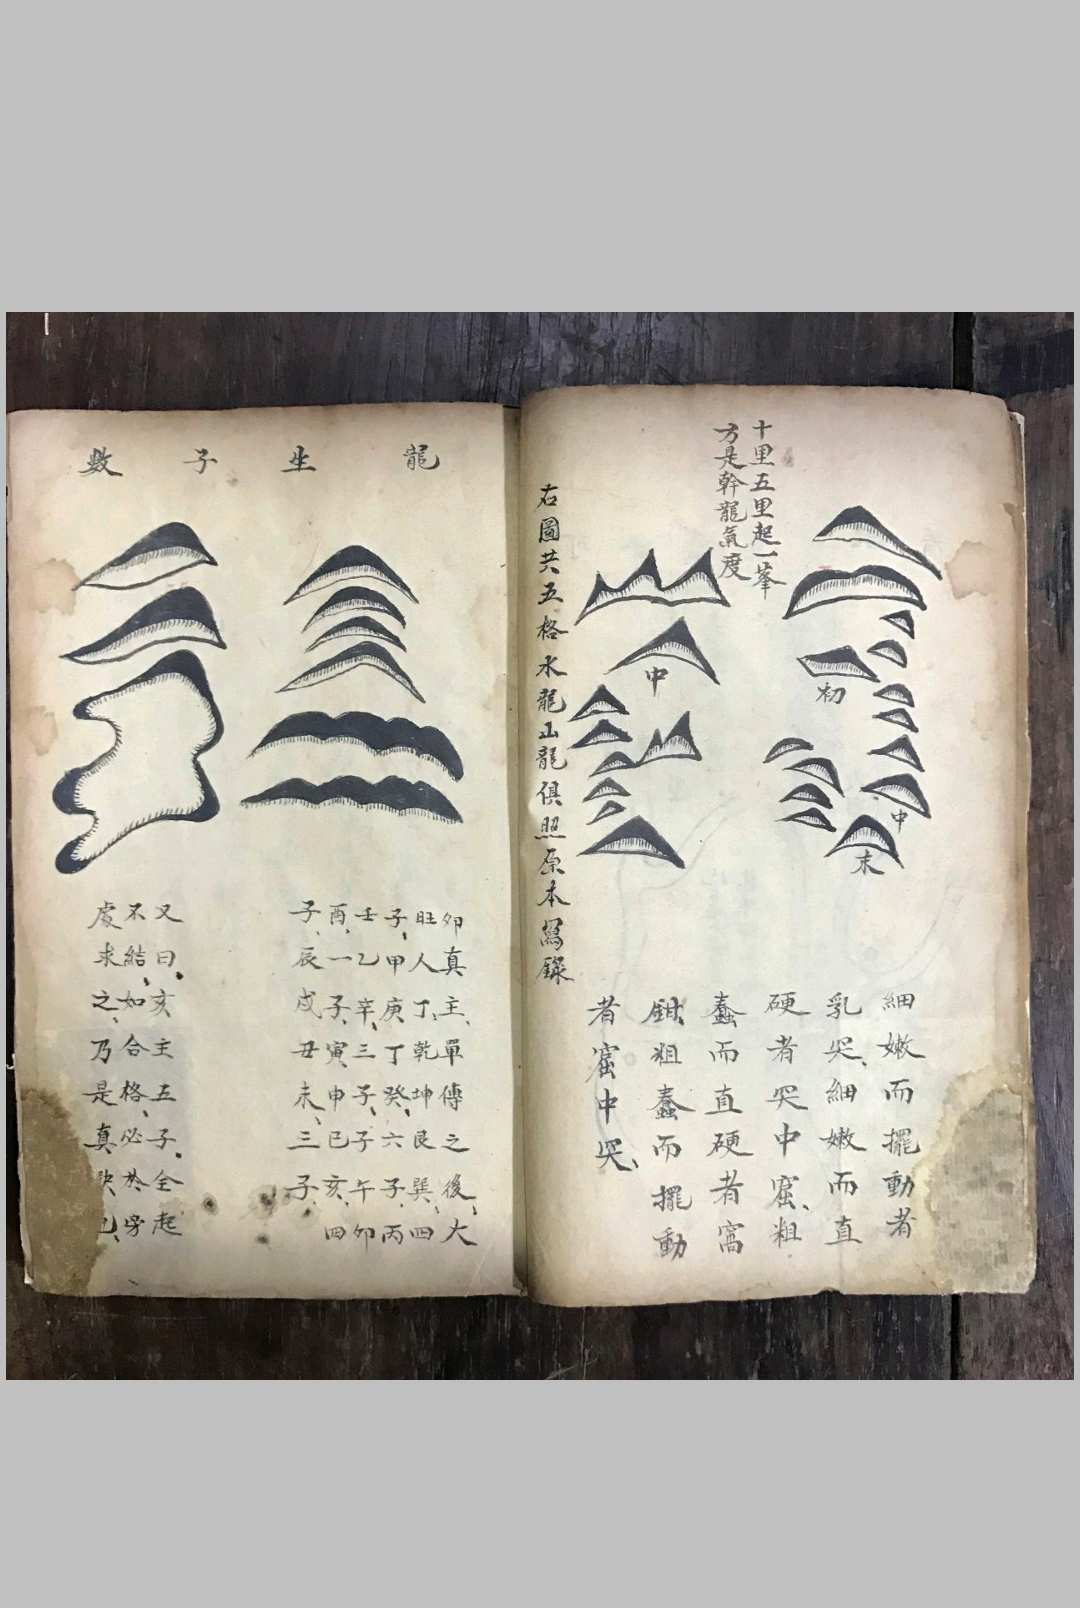 十里五里起一峯
方是幹龍氣度
初
中
末
中
細嫩而擺動者
乳突、細嫩而直
硬者突中窟、粗
蠢而直硬者窩
鉗、粗蠢而擺動
者窟中突、
右圖共五格水龍山龍俱照原本寫錄
龍生子數
卯真主、單傳之後、大
旺人丁、乾坤艮巽、四
子、甲庚丁癸、六子、丙
壬乙辛、三子、子午卯
酉、一子、寅申巳亥、四
子、辰戌丑未、三子、
又曰、亥主五子、全起
不結、如合格、必於旁
處求之、乃是真